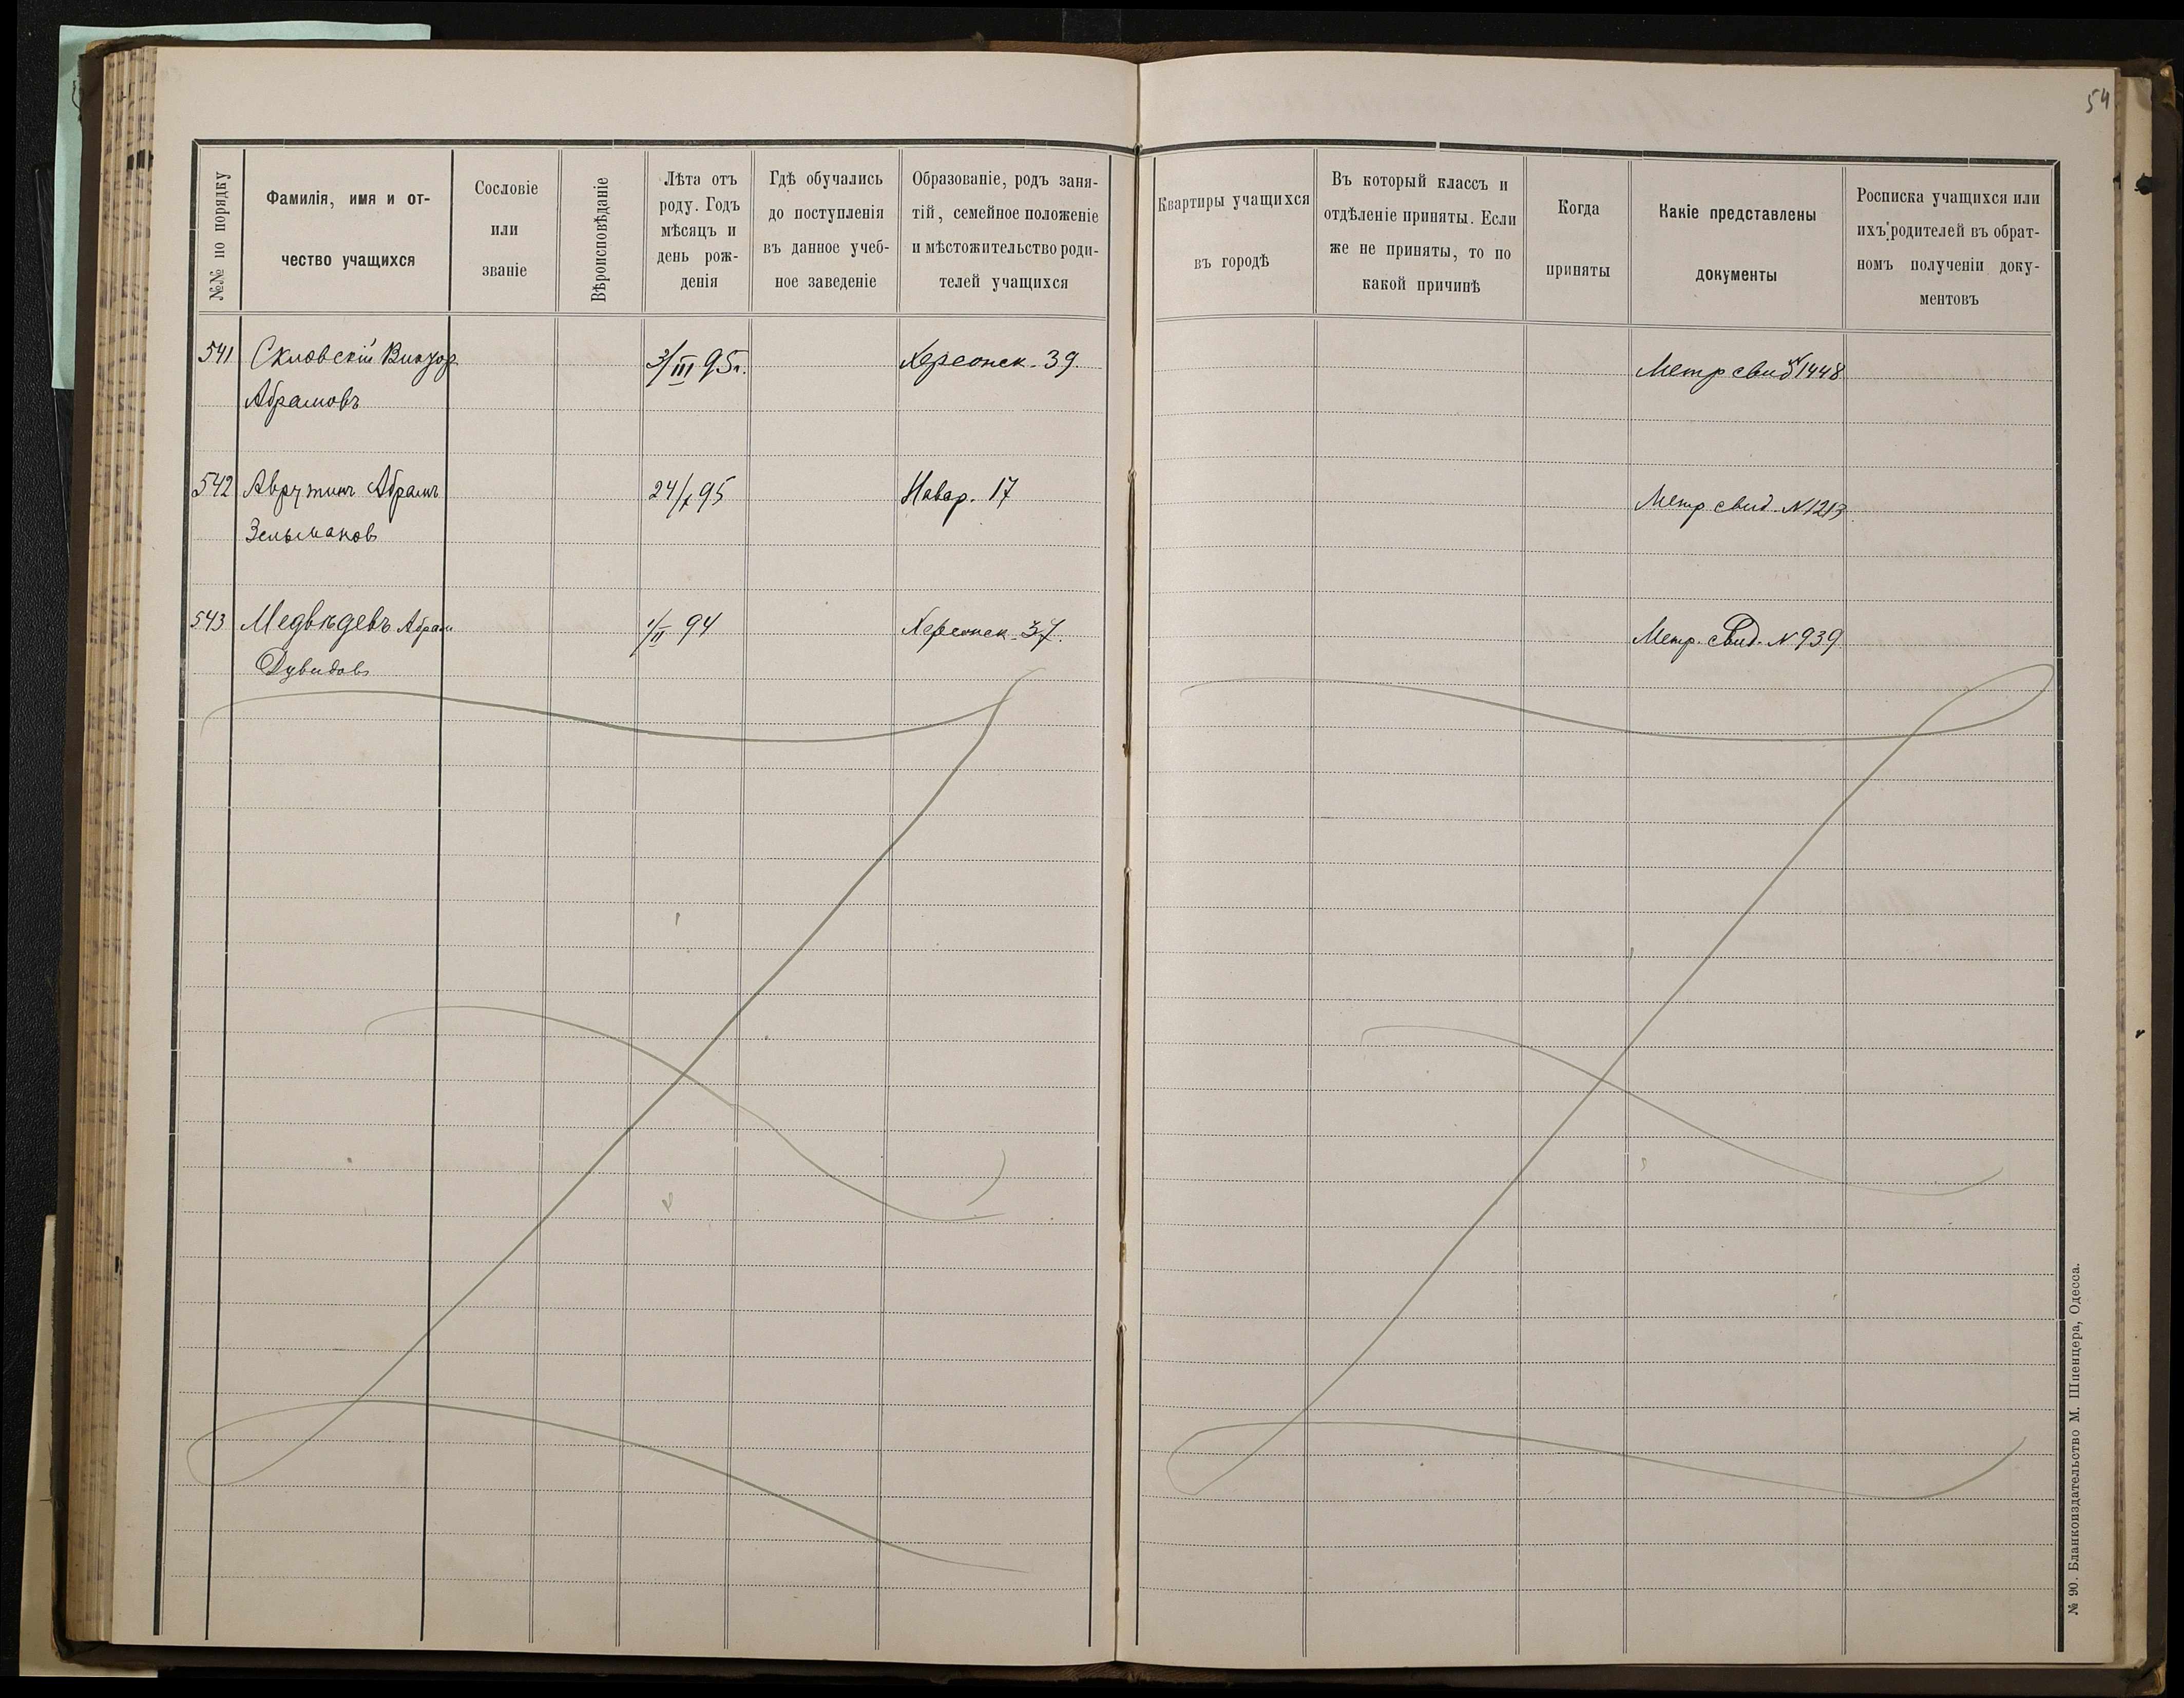 54
№№ по порядку
Фамилія, имя и от-
чество учащихся
Сословіе
или
званіе
Вѣроисповѣданіе
Лѣта отъ
роду. Годъ
мѣсяцъ и
день рож-
денія
Гдѣ обучались
до поступленія
въ данное учеб-
ное заведеніе
Образованіе, родъ заня-
тій, семейное положеніе
и мѣстожительство роди-
телей учащихся
Квартиры учащихся
въ городѣ
Въ который классъ и
отдѣленіе приняты. Если
же не приняты, то по
какой причинѣ
Когда
приняты
Какіе представлены
документы
Росписка учащихся или
ихъ родителей въ обрат-
номъ полученіи доку-
ментовъ
541 Скловскій 3/III 95г. Херсонск. 39 Метр свид №1448
Абрамовъ
542 Аврутинъ Абрамъ 24/ 95 17 Метр свид N 1213
Зельманов
543 Медвѣдевъ Абрам 1/II 94 Херсонск. 37. Метр. свид. N 939
Дувидов
№ 90. Бланкоиздательство М. Шпенцера, Одесса.